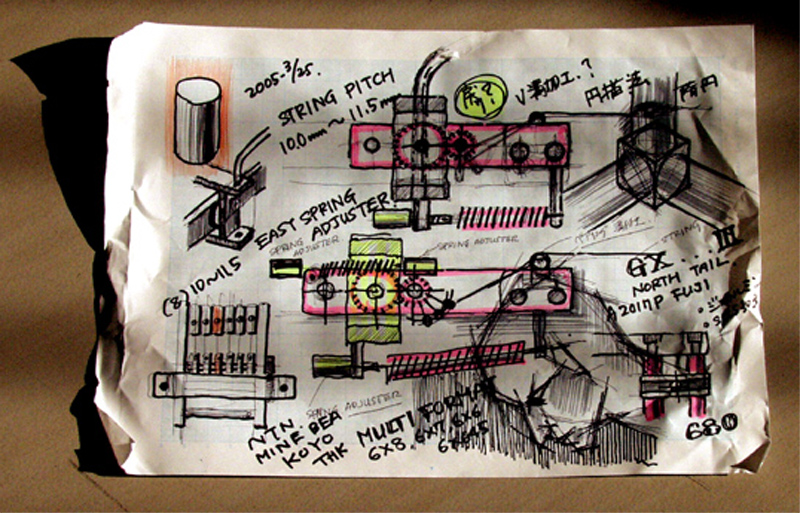 2005-3/25.
STRING PITCH
10.0mm~11.5mm
V溝加工.?
円描法
楕円
EAST SPRING
ADJUSTER
SPRING ADJUSTER
SPRING ADJUSTER
STRING
(8) 10~11.5
GX... III
NORTH TAIL
A2017P FUJI
SPRING ADJUSTER
NTN.
MINEBEA
KOYO
THK
MULTI FORMA
6X8. 6X7. 6X6
6X4.5
680